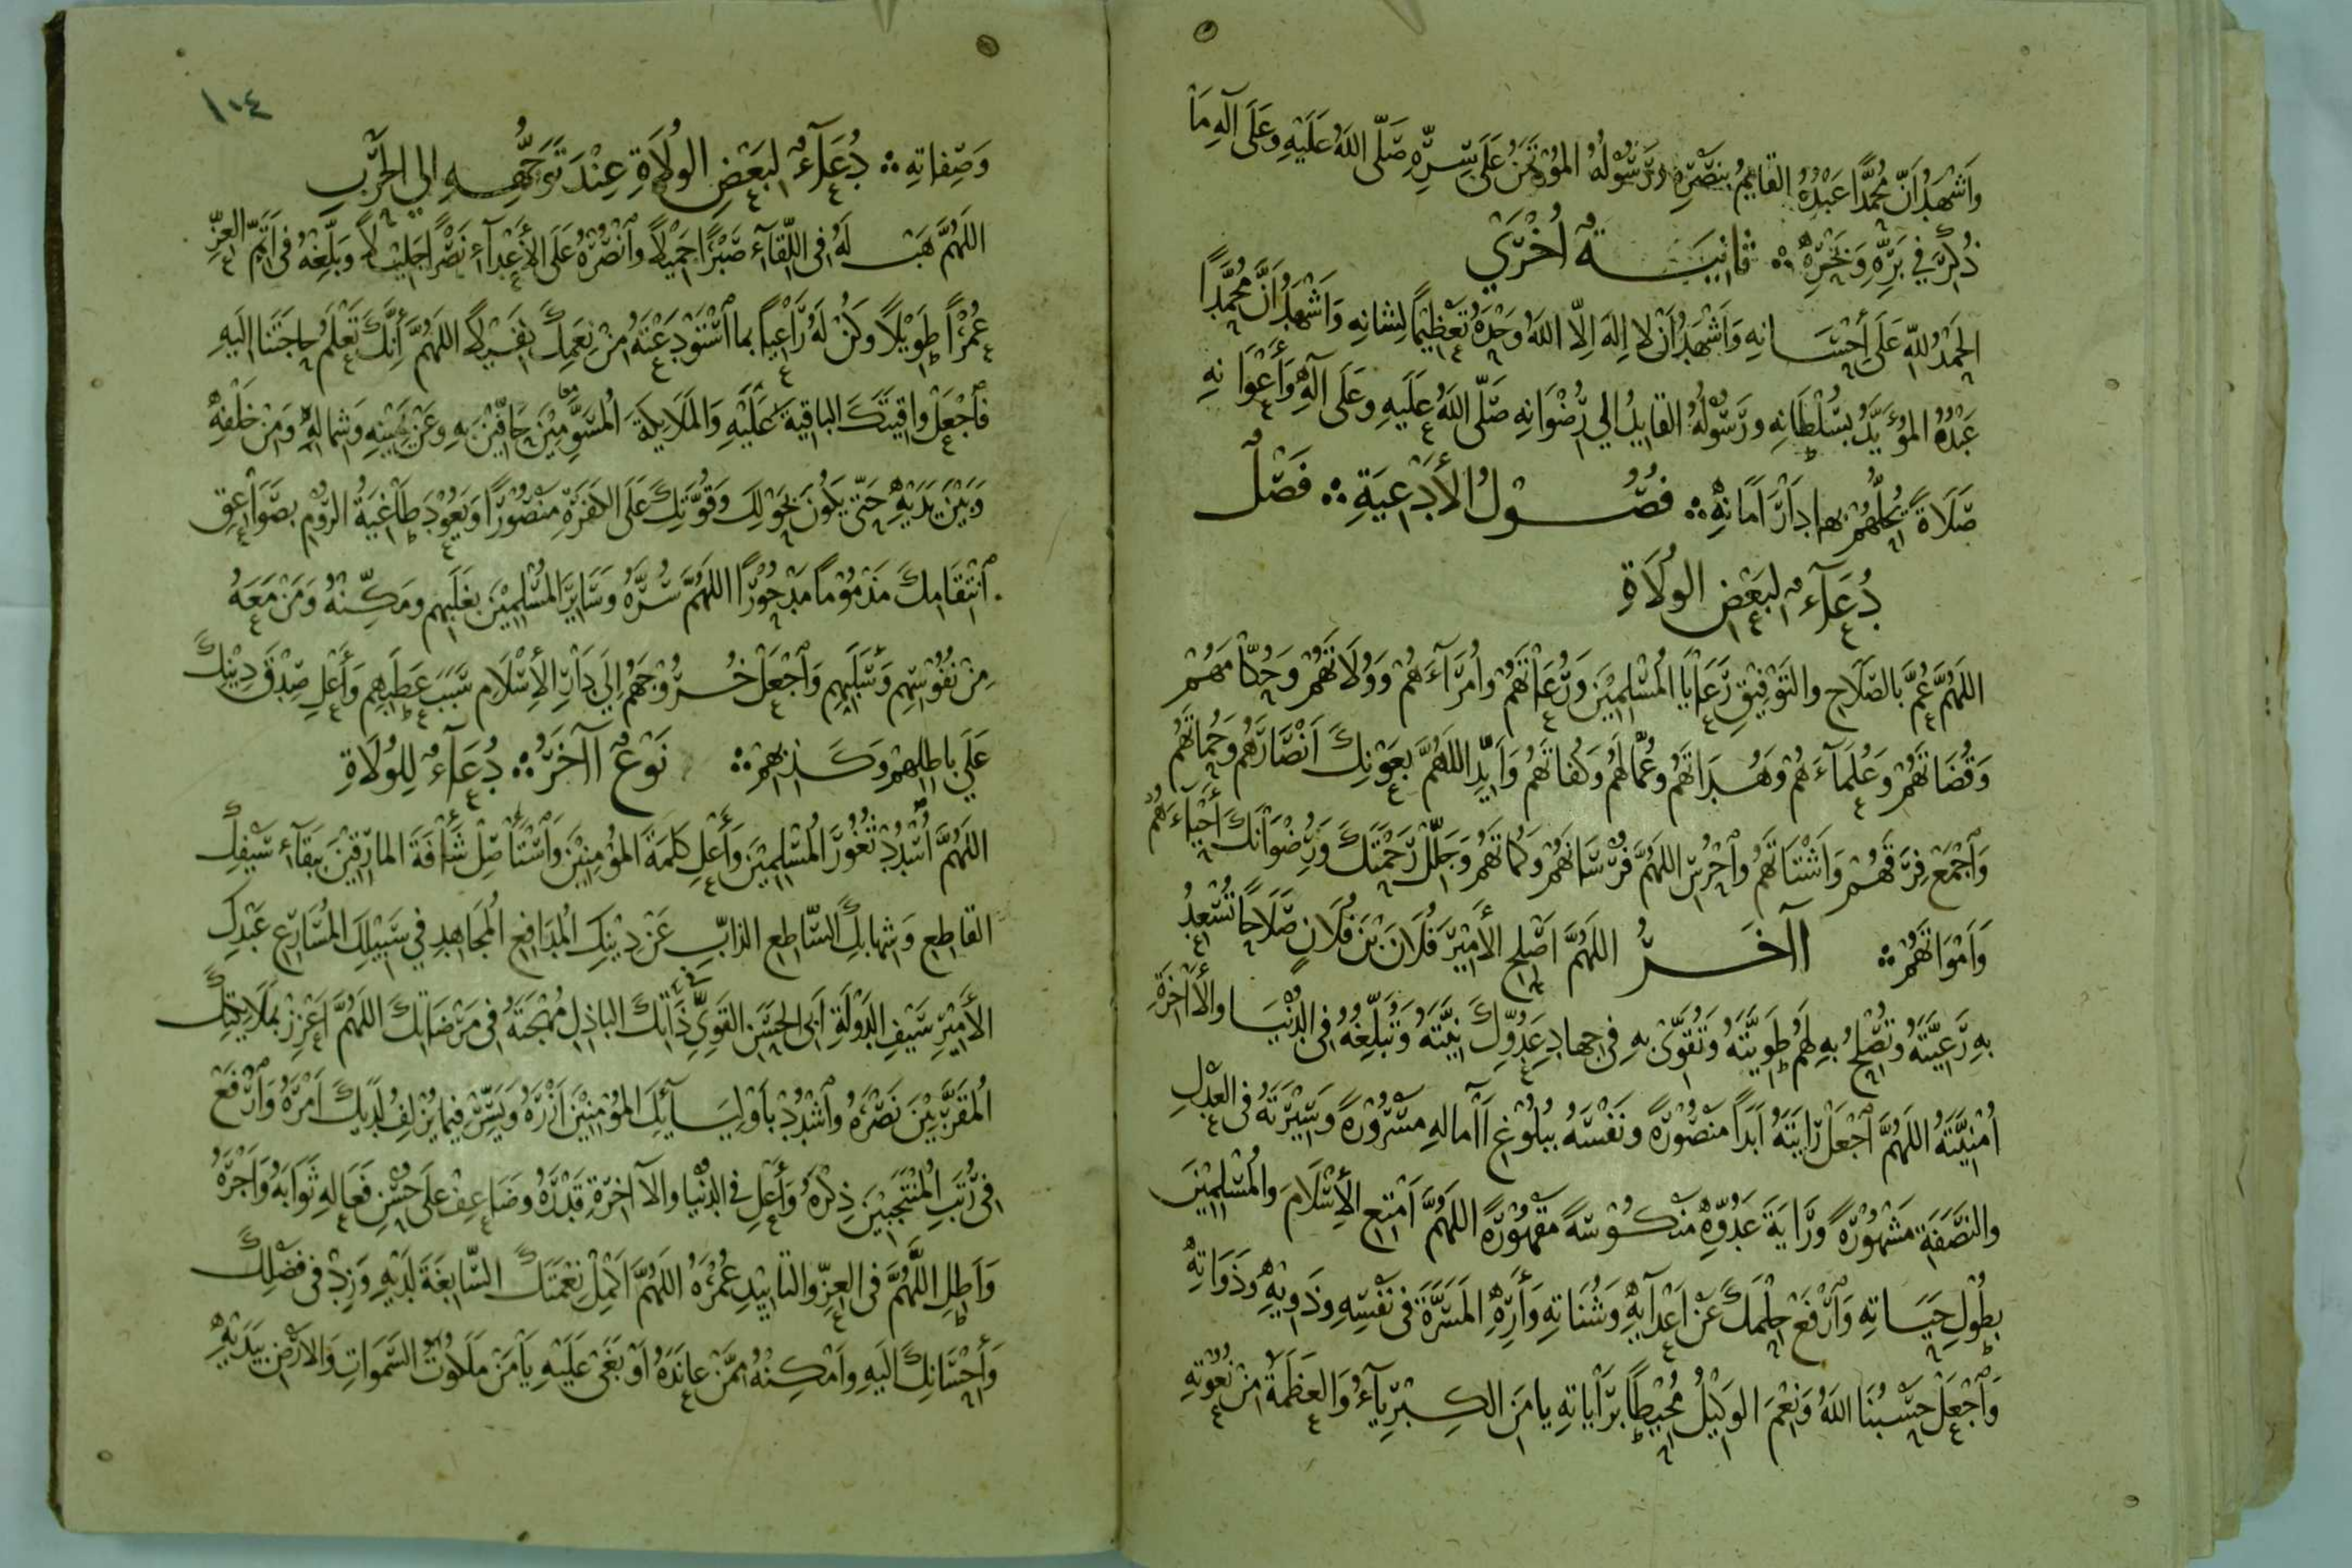 وَاَشْهَدُ اَنَّ مُحَمَّدًا عَبْدُهُ القايِمُ بِنَصْرِهِ وَرَسُوْلُهُ المُؤْتَمَنُ عَلَى سِرِّهِ صَلّى اللهُ عَلَيْهِ وَعَلَى آلِهِ مَا
ذُكِرَ فِي بَرِّهِ وَبَحْرِهِ ثانِيَةٌ اُخْرَيْ
الحَمْدُ للهِ عَلَى اَحْسَانِهِ وَاَشْهَدُ اَنْ لا اِلهَ اِلّا اللهُ وَحْدَهُ تَعْظِيْمًا لِشانِهِ وَاَشْهَدُ اَنَّ مُحَمَّدًا
عَبْدُهُ المُؤَيَّدُ بِسُلْطَانِهِ وَرَسُوْلُهُ القايِلُ الي رِضْوَانِهِ صَلّى اللهُ عَلَيهِ وَعَلَى آلِهِ وَأَعْوَانِهِ
صَلَاةً يُحِلُّهُمْ بها دَارَ اَمَانِهِ فُصُوْلُ الأَدْعِيَةِ فَصْلٌ
دُعَآءٌ لِبَعْضِ الوُلَاةِ
اللهُمَّ عُمَّ بالصَّلَاحِ والتَوْفِيْقِ رَعَايَا المُسْلِمِيْنَ وَرُعَاتَهُمْ وأُمَرَآءَهُمْ وَوُلَاتَهُمْ وَحُكّامَهُمْ
وَقُضَاتَهُمْ وَعُلَمآءَهُمْ وَهُدَاتَهُمْ وعُمّالَهُمْ وَكُفاتَهُمْ وَاَيِّدِ اللهُمَّ بِعَوْنِكَ اَنْصَارَهُم وَحُمَاتَهُم
وَاَجْمَعْ فِرَقَهُمْ وَاَشْتَاتَهُمْ واَحْرُسِ اللهُمَّ فُرْسَانَهُمْ وكُمَاتَهُمْ وَجَلِّلْ رَحْمَتَكَ وَرِضْوَانَكَ أَحْيَآءَهُمْ
وَاَمْوَاتَهُمْ آاخَرُ اللهُمَّ اَصْلِحِ الأَمِيْرَ فُلَانَ بْنَ فُلَانٍ صَلَاحًا تُسْعِدُ
بِهِ رَعِيَّتَهُ وَتُصْلِحُ بِهِ لَهُمْ طَوِيَّتَهُ وَتُقَوِّى بِهِ فِي جِهادِ عَدُوِّكَ نِيَّتَهُ وَتُبَلِّغُهُ فِي الدُنْيَا والأآخِرَةِ
اُمْنِيَّتَهُ اللهُمَّ اَجْعَلْ رَايَتَهُ اَبَدًا مَنْصُوْرَةً وَنَفْسَهُ بِبُلُوْغِ آامالِهِ مَسْرُوْرَةً وَسِيْرَتَهُ فِي العَدْلِ
والنَصَفَةِ مَشْهُوْرَةً وَرَايَةَ عَدُوِّهِ مَنْكُوْسَةً مَقْهُوْرَةً اللهُمَّ اَمْتِعِ الأِسْلَامَ والمُسْلِمِيْنَ
بِطُوْلِ حَيَاتِهِ وَاَرْفَعْ حِلْمَكَ عَنْ اَعْدَآيِهِ وَشُنَاتِهِ وَأَرِهِ المَسَرَّةَ فِي نَفْسِهِ وَذَوِيْهِ وَذَوَاتِهِ
وَاَجْعَلْ حَسْبُنَا اللهُ وَنِعْمَ الوَكِيْلُ مُحِيْطًا بِرَايَاتِهِ يا مَنِ الكِبْرِيآءُ وَالعَظَمَةُ مِنْ نُعُوْتِهِ
١٠٤
وَصِفاتِهِ دُعَآءٌ لِبَعْضِ الوُلَاةِ عِنْدَ تَوَجُّهِهِ الي الحَرْبِ
اللهُمَّ هَبْ لَهُ فِي اللّقآءِ صَبْرًا جَمِيْلًا واَنْصُرْهُ عَلَى الأَعْدآءِ نَصْرًا جَلِيْلًا وَبَلِّغْهُ فِي اَتَمِّ العِزِّ
عُمْرًا طَوِيْلًا وَكُنْ لَهُ رَاعِيًا بما اَسْتَوْدَعْتَهُ مِنْ نِعَمِكَ كَفِيْلًا اللهُمَّ أَنَّكَ تَعْلَمُ حاجَتَنا اِلَيهِ
فاَجْعَلْ واقِيَتَكَ الباقِيةَ عَلَيْهِ وَالمَلَايِكَةَ المُسَوِّمِيْنَ حَافّيْنَ بِهِ وعَنْ يَمِيْنِهِ وَشِمالِهِ وَمِنْ خَلْفِهِ
وَبَيْنَ يَدَيْهِ حَتّى يَكُوْنَ بِحَوْلِكَ وَقُوَّتِكَ عَلَى الكَفَرَةِ مَنْصُوْرًا وَيَعُوْدَ طَاْغِيَةُ الرُوْمِ بِصَوَاعِقِ
اَنْتِقَامِكَ مَذْمُوْمًا مَدْحُوْرًا اللهُمَّ سُرَّهُ وَسَايِرَ المُسْلِمِيْنَ بِغَلَبِهِم وَمَكِّنْهُ وَمَنْ مَعَهُ
مِنْ نُفُوْسِهِم وَسَلَبِهِم وَاَجْعَلْ خُرُوْجَهُم اِلَى دَارِ الأِسْلَامِ سَبَبَ عَطَبِهِم وَأَعْلِ صِدْقَ دِيْنِكَ
عَلَي باطِلِهِمْ وَكَذِبِهِمْ نَوْعٌ آاخَرُ دُعَآءٌ لِلوُلَاةِ
اللهُمَّ اَسْدُدْ ثُغُوْرَ المُسْلِمِيْنَ وَأَعْلِ كَلِمَةَ المُؤْمِنِيْنَ وَاَسْتَأْصِلْ شَأْفَةَ المارِقِيْنَ بِبَقَآءِ سَيْفِكَ
القَاطِعِ وَشِهابِكَ السّاطِعِ الذابِّ عَنْ دِيْنِكَ المُدَافِعِ المُجَاهِدِ فِي سَبِيْلِكَ المُسَارِعِ عَبْدِكَ
الأَمِيْرِ سَيْفِ الدَوْلَةِ اَبِي الحَسَنِ القَوِيِّ ذَاتِكَ الباذِلِ مُهْجَتَهُ فِي مَرْضَاتِكَ اللهُمَّ اَعْزِزْ بِمَلَايِكَتِكَ
المُقَرَّبِيْنَ نَصْرَهُ واَشْدُدْ بِأَوْلِيَآئِكَ المُؤْمِنِيْنَ اَزْرَهُ وَيَسِّرْ فِيما يُزْلِفُ لَدَيْكَ اَمْرَهُ وَاَرْفَعْ
فِي رُتَبِ المُنْتَجَبِيْنَ ذِكْرَهُ وَأَعْلِ فِي الدُنْيا والآاخِرَةِ قَدْرَهُ وضَاعِفْ عَلَى حُسْنِ فَعَالِهِ ثَوَابَهُ وَاَجْرَهُ
وَاَطِلِ اللَّهُمَّ فِي العِزِّ والتايِيْدِ عُمْرَهُ اللهُمَّ اَكْمِلْ نِعْمَتَكَ السّابِغَةَ لَدَيْهِ وَزِدْ فِي فَضْلِكَ
وَأَحْسَانِكَ الَيهِ وأَمْكِنْهُ مِمَّنْ عانَدَهُ اَوْ بَغَى عَلَيْهِ يَا مَنْ مَلَكُوْتُ السَمَوَاتِ وَالاَرْضِ بِيَدَيْهِ